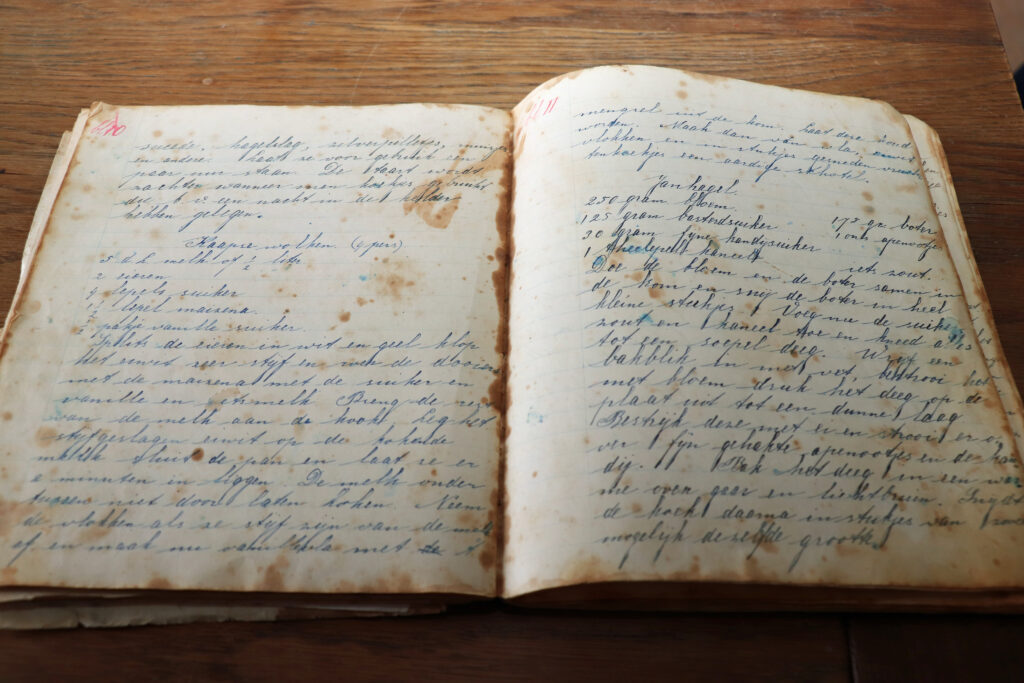 10
suède. hagelslag, zilverpilletjes,
en andere. Laat ze voor gebruik een
paar uur staan. De taart wordt
zachter wanneer men koekjes gebruikt
die b.v. een nacht in de kelder
hebben gelegen.
Kaapse wolken (4 pers)
5 d.l. melk of ½ liter
2 eieren
4 lepels suiker
½ lepel maizena.
½ pakje vanille suiker.
Splits de eieren in wit en geel klop
het eiwit zeer stijf en roer de dooiers
met de maizena met de suiker en
vanille en melk Breng de rest
van de melk aan de kook. Leg het
stijfgeslagen eiwit op de kokende
melk Sluit de pan en laat ze er
2 minuten in liggen. De melk onder
tussen niet door laten koken. Neem
de vlokken als ze stijf zijn van de melk
af en maak nu vanillevla met de
11
mengsel uit de kom. Laat deze koud
worden. Maak dan van de eiwit
vlokken en in stukjes gesneden vruch
ten koekjes een aardige schotel.
Janhagel
250 gram bloem.
125 gram basterdsuiker 175 gr boter
30 gram fijne kandysuiker 1 ons apenootjes
1 theelepeltje kaneel iets zout.
Doe de bloem en de boter samen in
de kom en snij de boter in heel
kleine stukjes. Voeg nu de suiker
zout en kaneel toe en kneed alles
tot een soepel deeg. Wrijf een
bakblik in met vet bestrooi het
met bloem druk het deeg op de
plaat uit tot een dunne laag
Bestrijk deze met ei en strooi er o
ver fijn gehakte apenootjes en de kan
dij. Bak het deeg in een war
me oven gaar en lichtbruin Snijdt
de koek daarna in stukjes van zoveel
mogelijk dezelfde grootte.